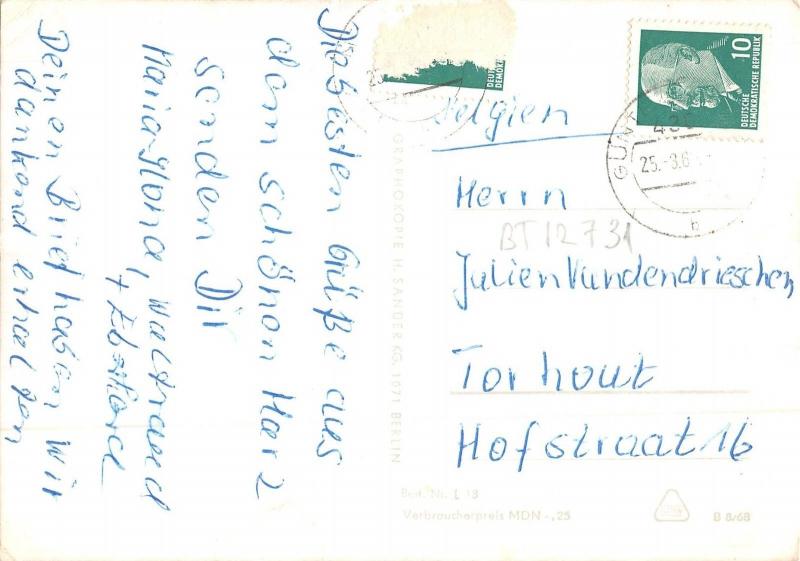 Die besten Grüße aus
dem schönen Harz
senden Dir
Maria-Ilona, Waltraud
+ Eberhard
Deinen Brief haben wir
dankend erhalten
GRAPHOKOPIE H. SANDER KG, 1071 BERLIN
DEUT
DEMOK
10
DEUTSCHE
DEMOKRATISCHE REPUBLIK
GUN
25.-8.6
b
Belgien
Herrn
BT12731
Julien Vandendriesschen
Torhout
Hofstraat 16
Best. Nr. L 18
Verbraucherpreis MDN -,25
B 8/68